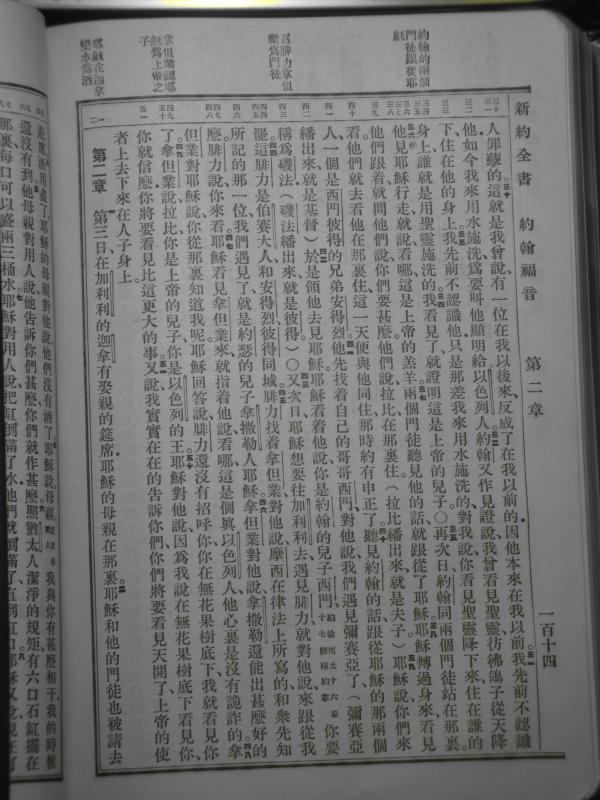 新約全書　約翰福音　第二章　一百十四
約翰的兩個
門徒跟從耶
穌
召腓力拿但
業爲門徒
拿但業認耶
穌爲上帝之
子
耶穌在迦拿
變水爲酒
人罪孽的這就是我曾說有一位在我以後來反成了在我以前的因他本來在我以前我先前不認識
他如今我來用水施洗爲要叫他顯明給以色列人約翰又作見證說我曾看見聖靈彷彿鴿子從天降
下住在他的身上我先前不認識他只是那差我來用水施洗的對我說你看見聖靈降下來住在誰的
身上誰就是用聖靈施洗的我看見了就證明這是上帝的兒子〇再次日約翰同兩個門徒站在那裏
他見耶穌行走就說看哪這是上帝的羔羊兩個門徒聽見他的話就跟從了耶穌耶穌轉過身來看見
他們跟着就問他們說你們要甚麼他們說拉比在那裏住（拉比繙出來就是夫子）耶穌說你們來
看他們就去看他在那裏住這一天便與他同住那時約有申正了聽見約翰的話跟從耶穌的那兩個
人一個是西門彼得的兄弟安得烈他先找着自己的哥哥西門對他說我們遇見彌賽亞了（彌賽亞
繙出來就是基督）於是領他去見耶穌耶穌看着他說你是約翰的兒子西門你要
稱爲磯法（磯法繙出來就是彼得）〇又次日耶穌想要往加利利去遇見腓力就對他說來跟從我
罷這腓力是伯賽大人和安得烈彼得同城腓力找着拿但業對他說摩西在律法上所寫的和衆先知
所記的那一位我們遇見了就是約瑟的兒子拿撒勒人耶穌拿但業對他說拿撒勒還能出甚麼好的
麼腓力說你來看耶穌看見拿但業來就指着他說看哪這是個眞以色列人他心裏是沒有詭詐的拿
但業對耶穌說你從那裏知道我呢耶穌回答說腓力還沒有招呼你你在無花果樹底下我就看見你
了拿但業說拉比你是上帝的兒子你是以色列的王耶穌對他說因爲我說在無花果樹底下看見你
你就信麼你將要看見比這更大的事又說我實實在在的告訴你們你們將要看見天開了上帝的使
者上去下來在人子身上
第二章　第三日在加利利的迦拿有娶親的筵席耶穌的母親在那裏耶穌和他的門徒也被請去
耶穌的母親對他說他們沒有酒了耶穌說母親我與你有甚麼相干我的時候
還沒有到他母親對用人說他告訴你們甚麼你們就作甚麼照猶太人潔淨的規矩有六口石缸擺在
那裏每口可以盛兩三桶水耶穌對用人說把缸倒滿了水他們就倒滿了直到缸口耶穌又說